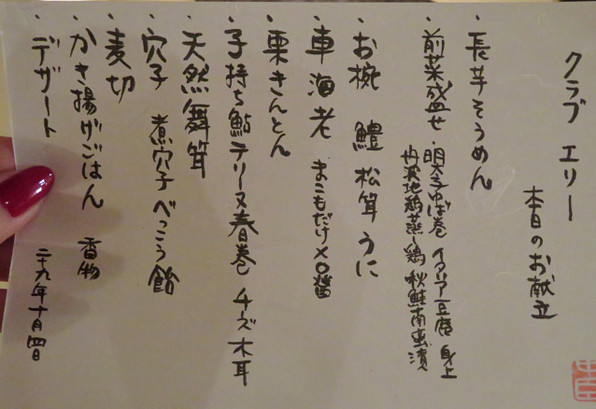 クラブ エリー
本日のお献立
・長芋そうめん
・前菜盛合せ 明太子ゆば巻 イタリア豆腐
丹波地鶏蒸し鶏 秋鮭南蛮漬
・お椀 鱧 松茸 うに
・車海老 まこもだけXO醤
・栗きんとん
・子持ち鮎テリーヌ春巻 チーズ 木耳
・天然舞茸
・穴子 煮穴子 べっこう飴
・麦切
・かき揚げごはん 香物
・デザート
二十九年十月四日